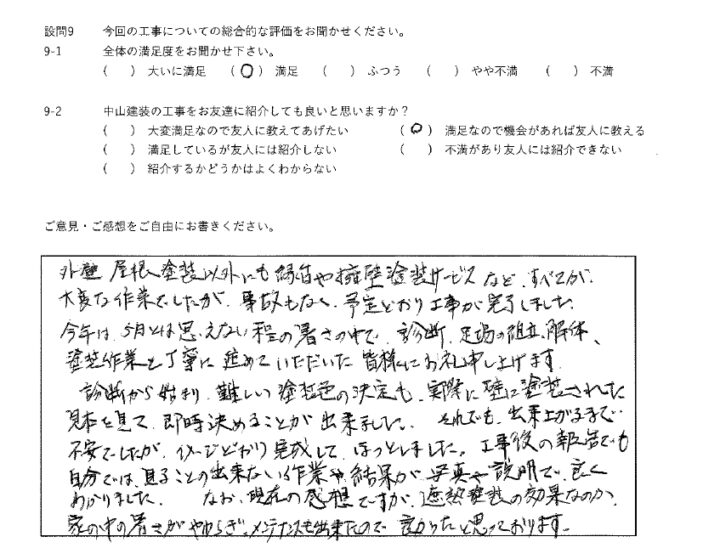 設問9 今回の工事についての総合的な評価をお聞かせください。
9-1 全体の満足度をお聞かせ下さい。
( ) 大いに満足 (○) 満足 ( ) ふつう ( ) やや不満 ( ) 不満
9-2 中山建装の工事をお友達に紹介しても良いと思いますか？
( ) 大変満足なので友人に教えてあげたい (○) 満足なので機会があれば友人に教える
( ) 満足しているが友人には紹介しない ( ) 不満があり友人には紹介できない
( ) 紹介するかどうかはよくわからない
ご意見・ご感想をご自由にお書きください。
外壁 屋根塗装以外にも 縁台や擁壁塗装サービスなど、すべてが、
大変な作業でしたが、事故もなく、予定どおり工事が完了しました
今年は、5月とは思えない程の暑さの中で、診断、足場の組立、解体、
塗装作業と丁寧に進めていただいた皆様にお礼申し上げます
診断から始まり、難しい塗装色の決定も、実際に壁に塗装された
見本を見て、即時決めることが出来ました。それでも、出来上がるまで
不安でしたが、イメージどおり完成して、ほっとしました。工事後の報告でも
自分では、見ることの出来ない作業や結果が、写真や説明で、良く
わかりました。 なお、現在の感想ですが、遮熱塗装の効果なのか、
家の中の暑さがやわらぎ、メンテナンスも出来たので良かったと思っております。